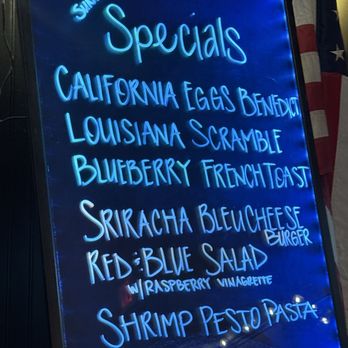 Specials
CALIFORNIA EGGS BENEDICT
LOUISIANA SCRAMBLE
BLUEBERRY FRENCH TOAST
SRIRACHA BLEU CHEESE
BURGER
RED & BLUE SALAD
W/ RASPBERRY VINAGRETTE
SHRIMP PESTO PASTA